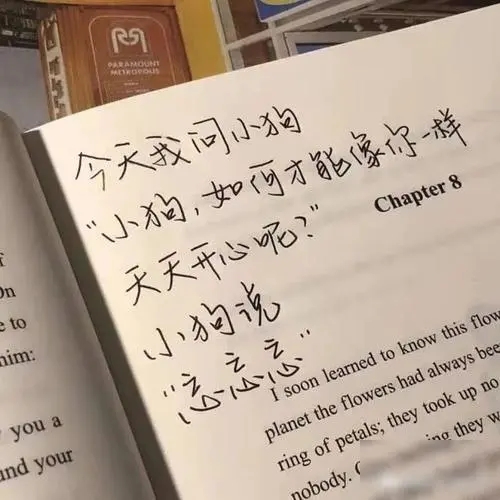 PARAMOUNT
METROPOLIS
今天我问小狗
"小狗,如何才能像你一样
天天开心呢?"
小狗说
"忘忘忘"
Chapter 8
I soon learned to know this flow
planet the flowers had always been
ring of petals; they took up no
nobody.
ing they w
On
e to
him:
you a
und your